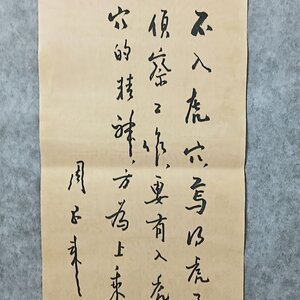 不入虎穴焉得虎子
侦察工作要有入虎
穴的精神方为上乘
周